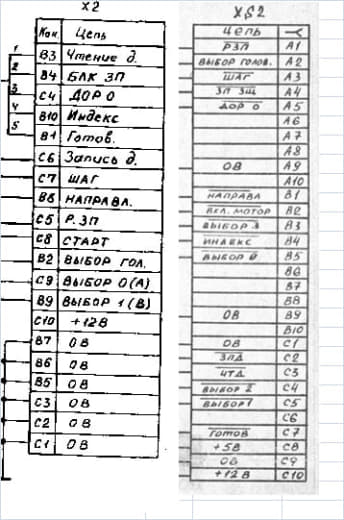 X2
Кон. Цепь
1 В3 Чтение д.
2 В4 БЛК ЗП
3 С4 ДОР 0
4 В10 Индекс
5 В1 Готов.
С6 Запись д.
С7 ШАГ
В8 НАПРАВЛ.
С5 Р.ЗП
С8 СТАРТ
В2 ВЫБОР ГОЛ.
С9 ВЫБОР 0(А)
В9 ВЫБОР 1(В)
С10 +12В
В7 0В
В6 0В
В5 0В
С3 0В
С2 0В
С1 0В
XS2
ЦЕПЬ
РЗП А1
ВЫБОР ГОЛОВ. А2
ШАГ А3
ЗП ЗЩ А4
ДОР 0 А5
А6
А7
А8
0В А9
А10
НАПРАВЛ В1
ВКЛ. МОТОР В2
ВЫБОР 3 В3
ИНДЕКС В4
ВЫБОР 0 В5
В6
В7
В8
0В В9
В10
0В С1
ЗПД С2
ЧТД С3
ВЫБОР 2 С4
ВЫБОР 1 С5
С6
ГОТОВ С7
+5В С8
0В С9
+12В С10